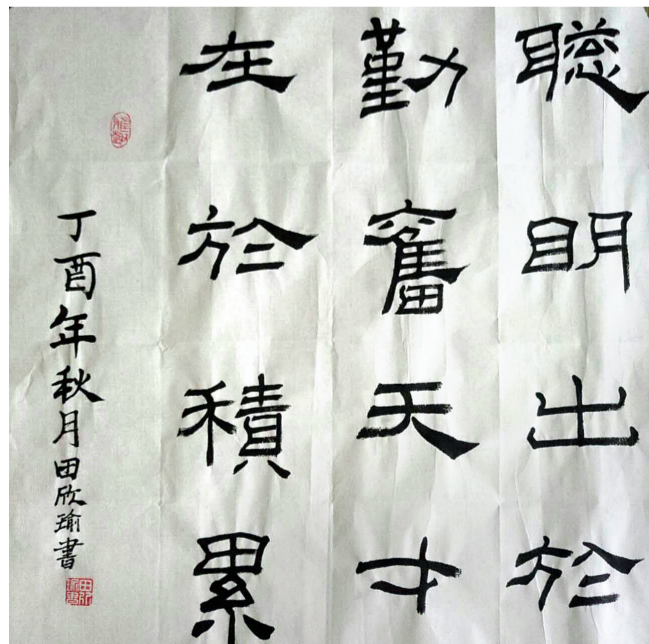 聪明出於
勤奮天才
在於積累
丁酉年秋月田欣瑜書